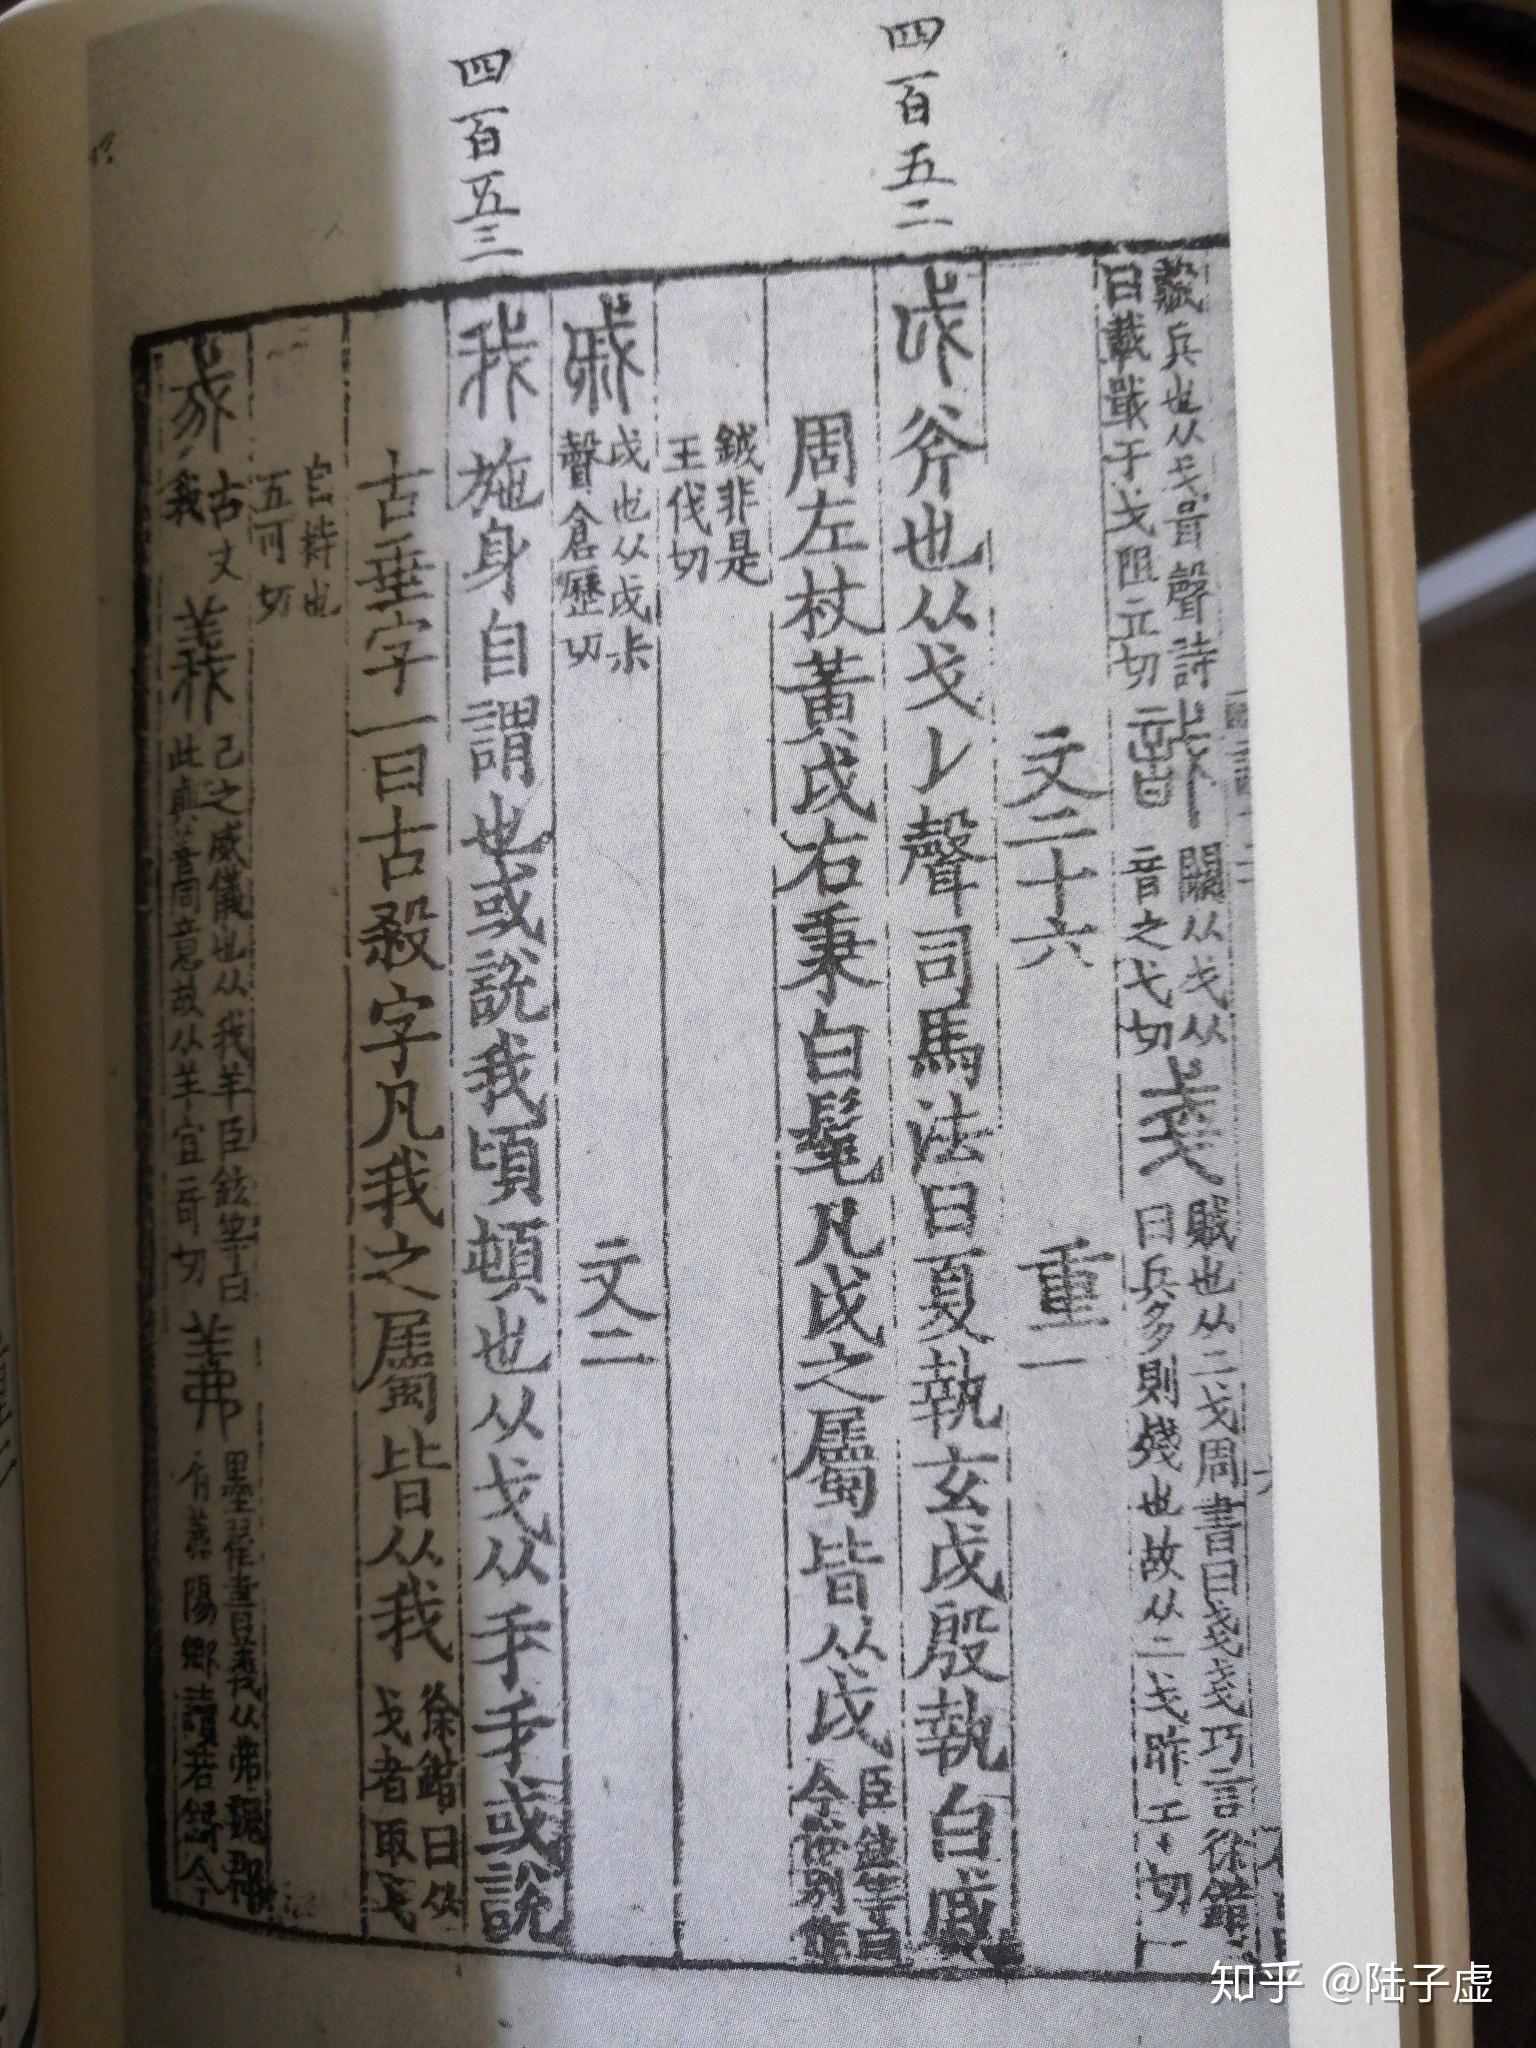 四百五二
四百五三
藏兵也从戈咠聲詩
曰載戢于戈阻立切
闕从戈从
音之弋切
賊也从二戈周書曰戔戔巧言徐鍇
曰兵多則殘也故从二戈昨干切
文二十六 重一
戉斧也从戈𠄌聲司馬法曰夏執玄戉殷執白戚
周左杖黃戉右秉白髦凡戉之屬皆从戉
臣鉉等曰
今俗別作
鉞非是
王伐切
戚
戉也从戉尗
聲倉歷切
文二
我施身自謂也或說我頃頓也从戈从手手或說
古垂字一曰古殺字凡我之屬皆从我
徐鍇曰从
戈者取戈
自持也
五可切
古文
我
義
己之威儀也从我羊臣鉉等曰
此與善同意故从羊宜奇切
墨翟書義从弗魏郡
有羛陽鄉讀若錡今
知乎 @陆子虚